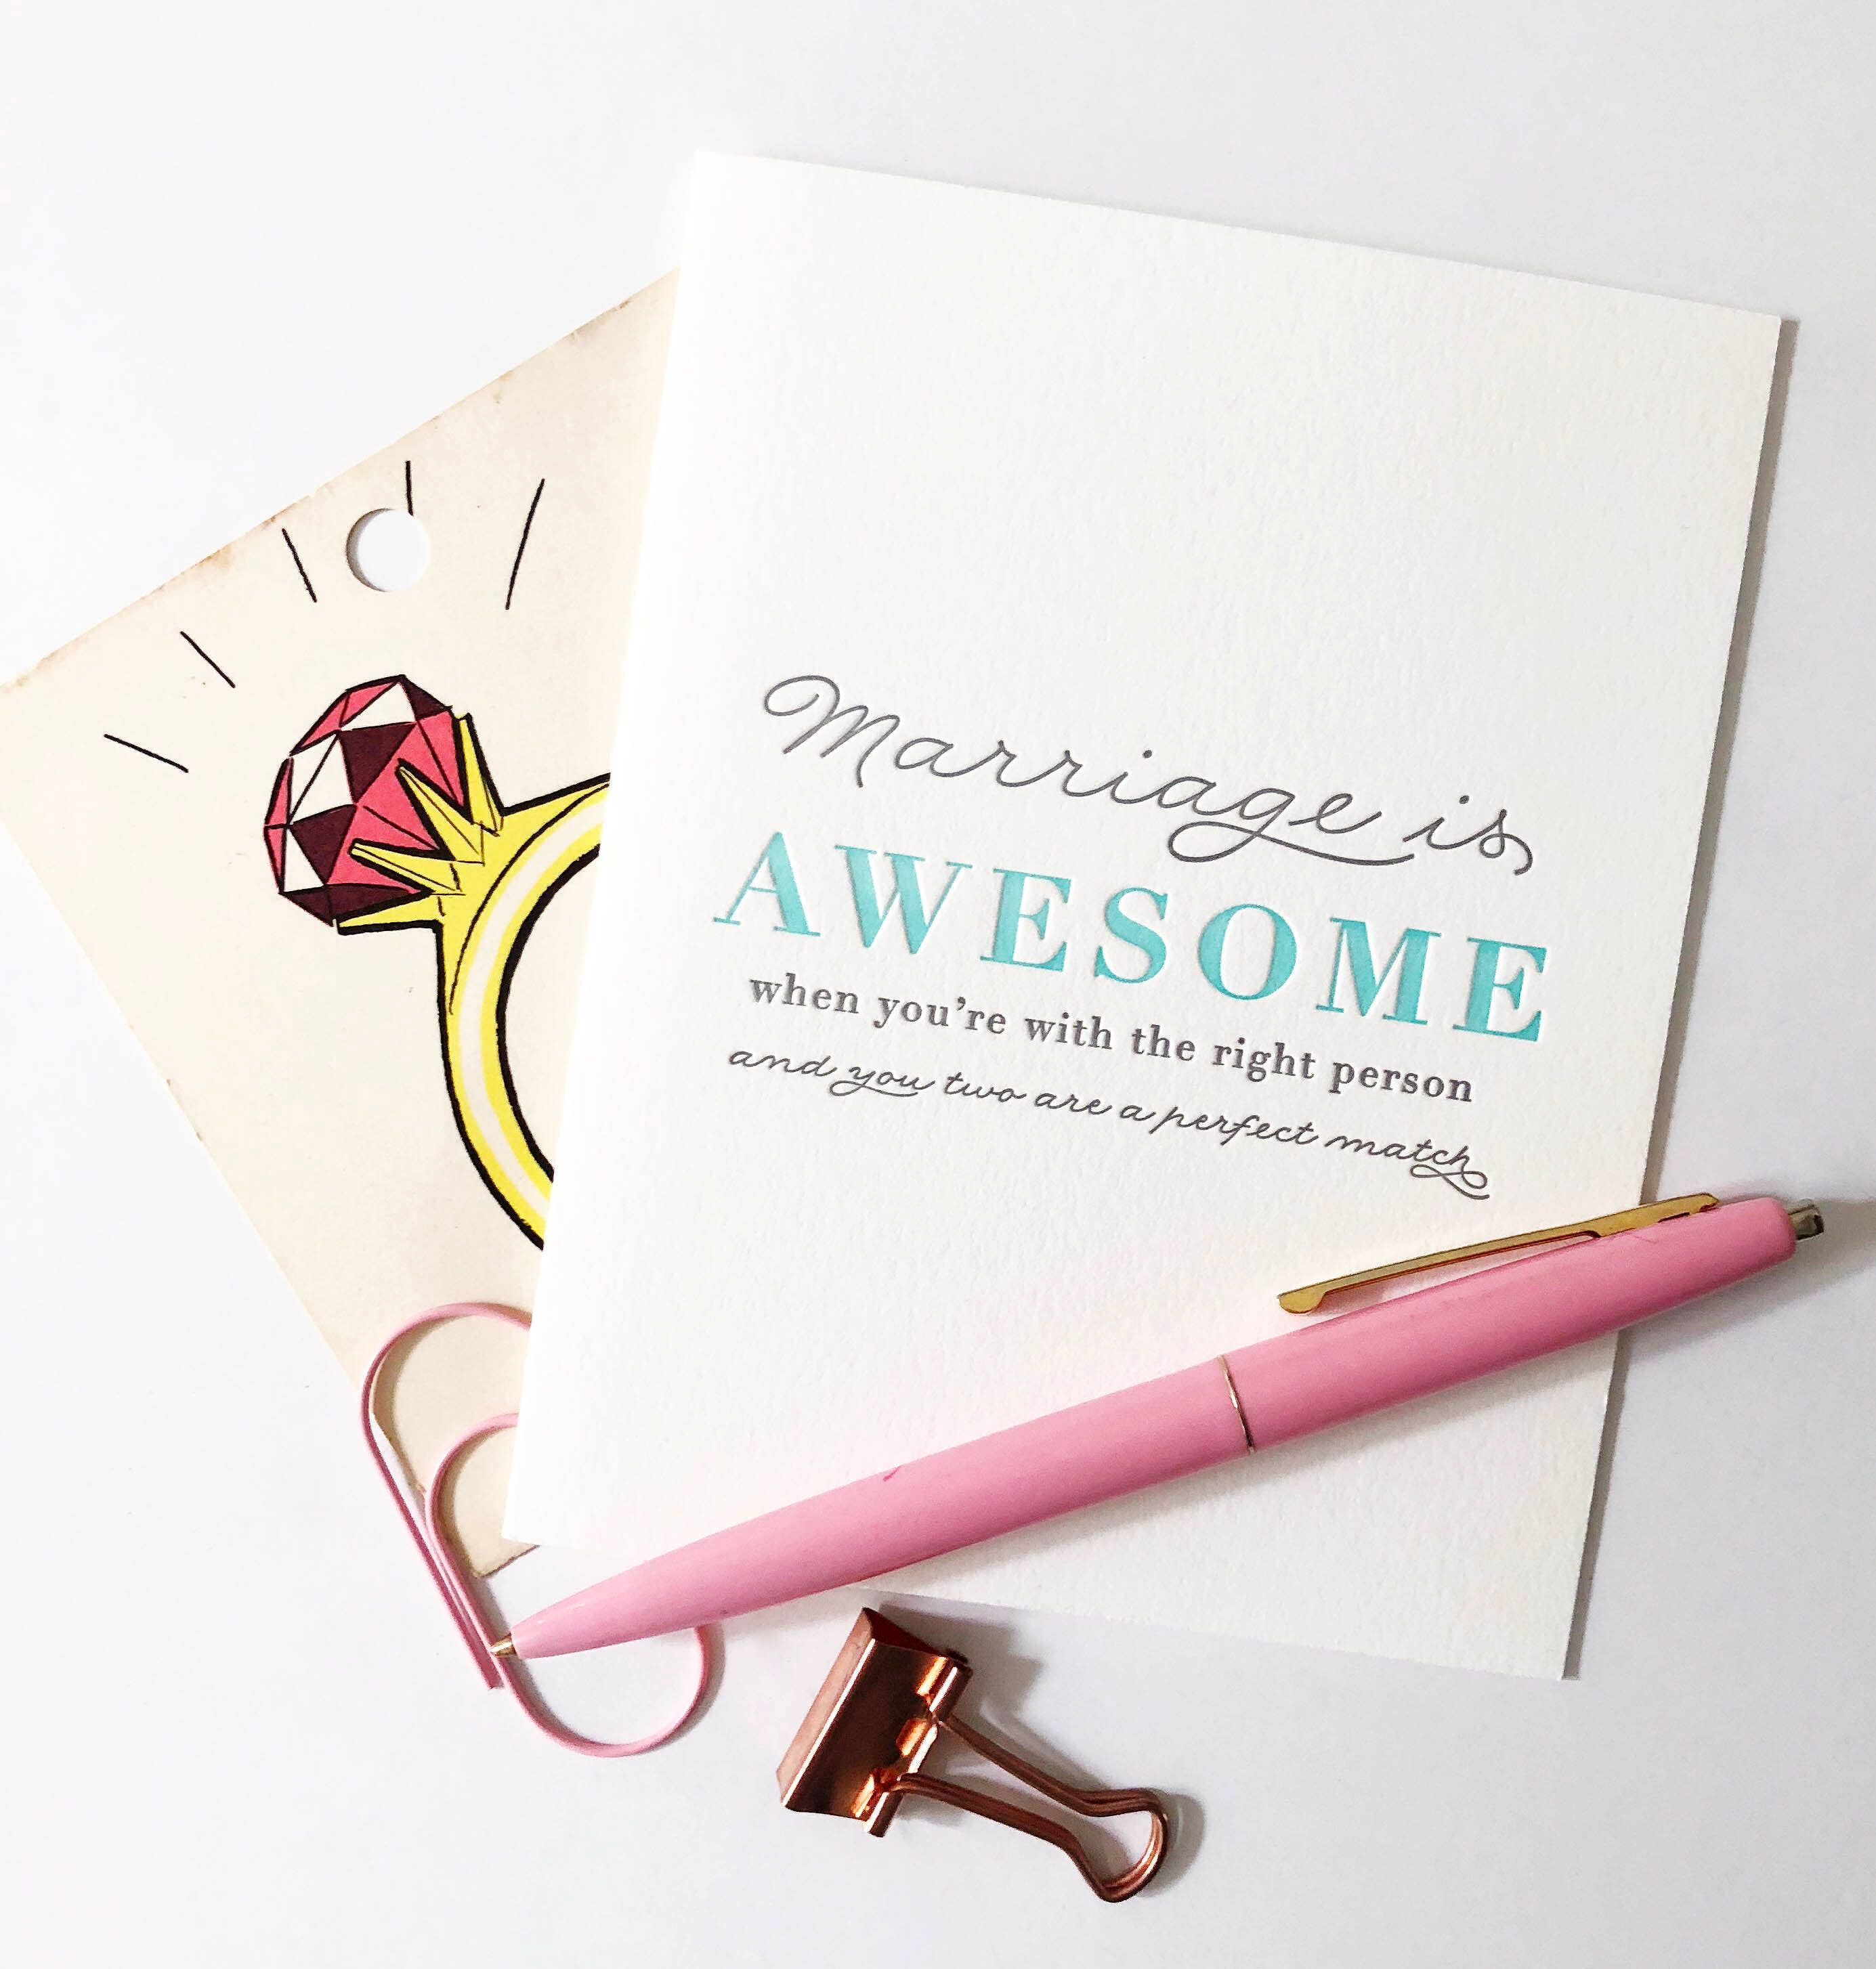 Marriage is
AWESOME
when you're with the right person
and you two are a perfect match